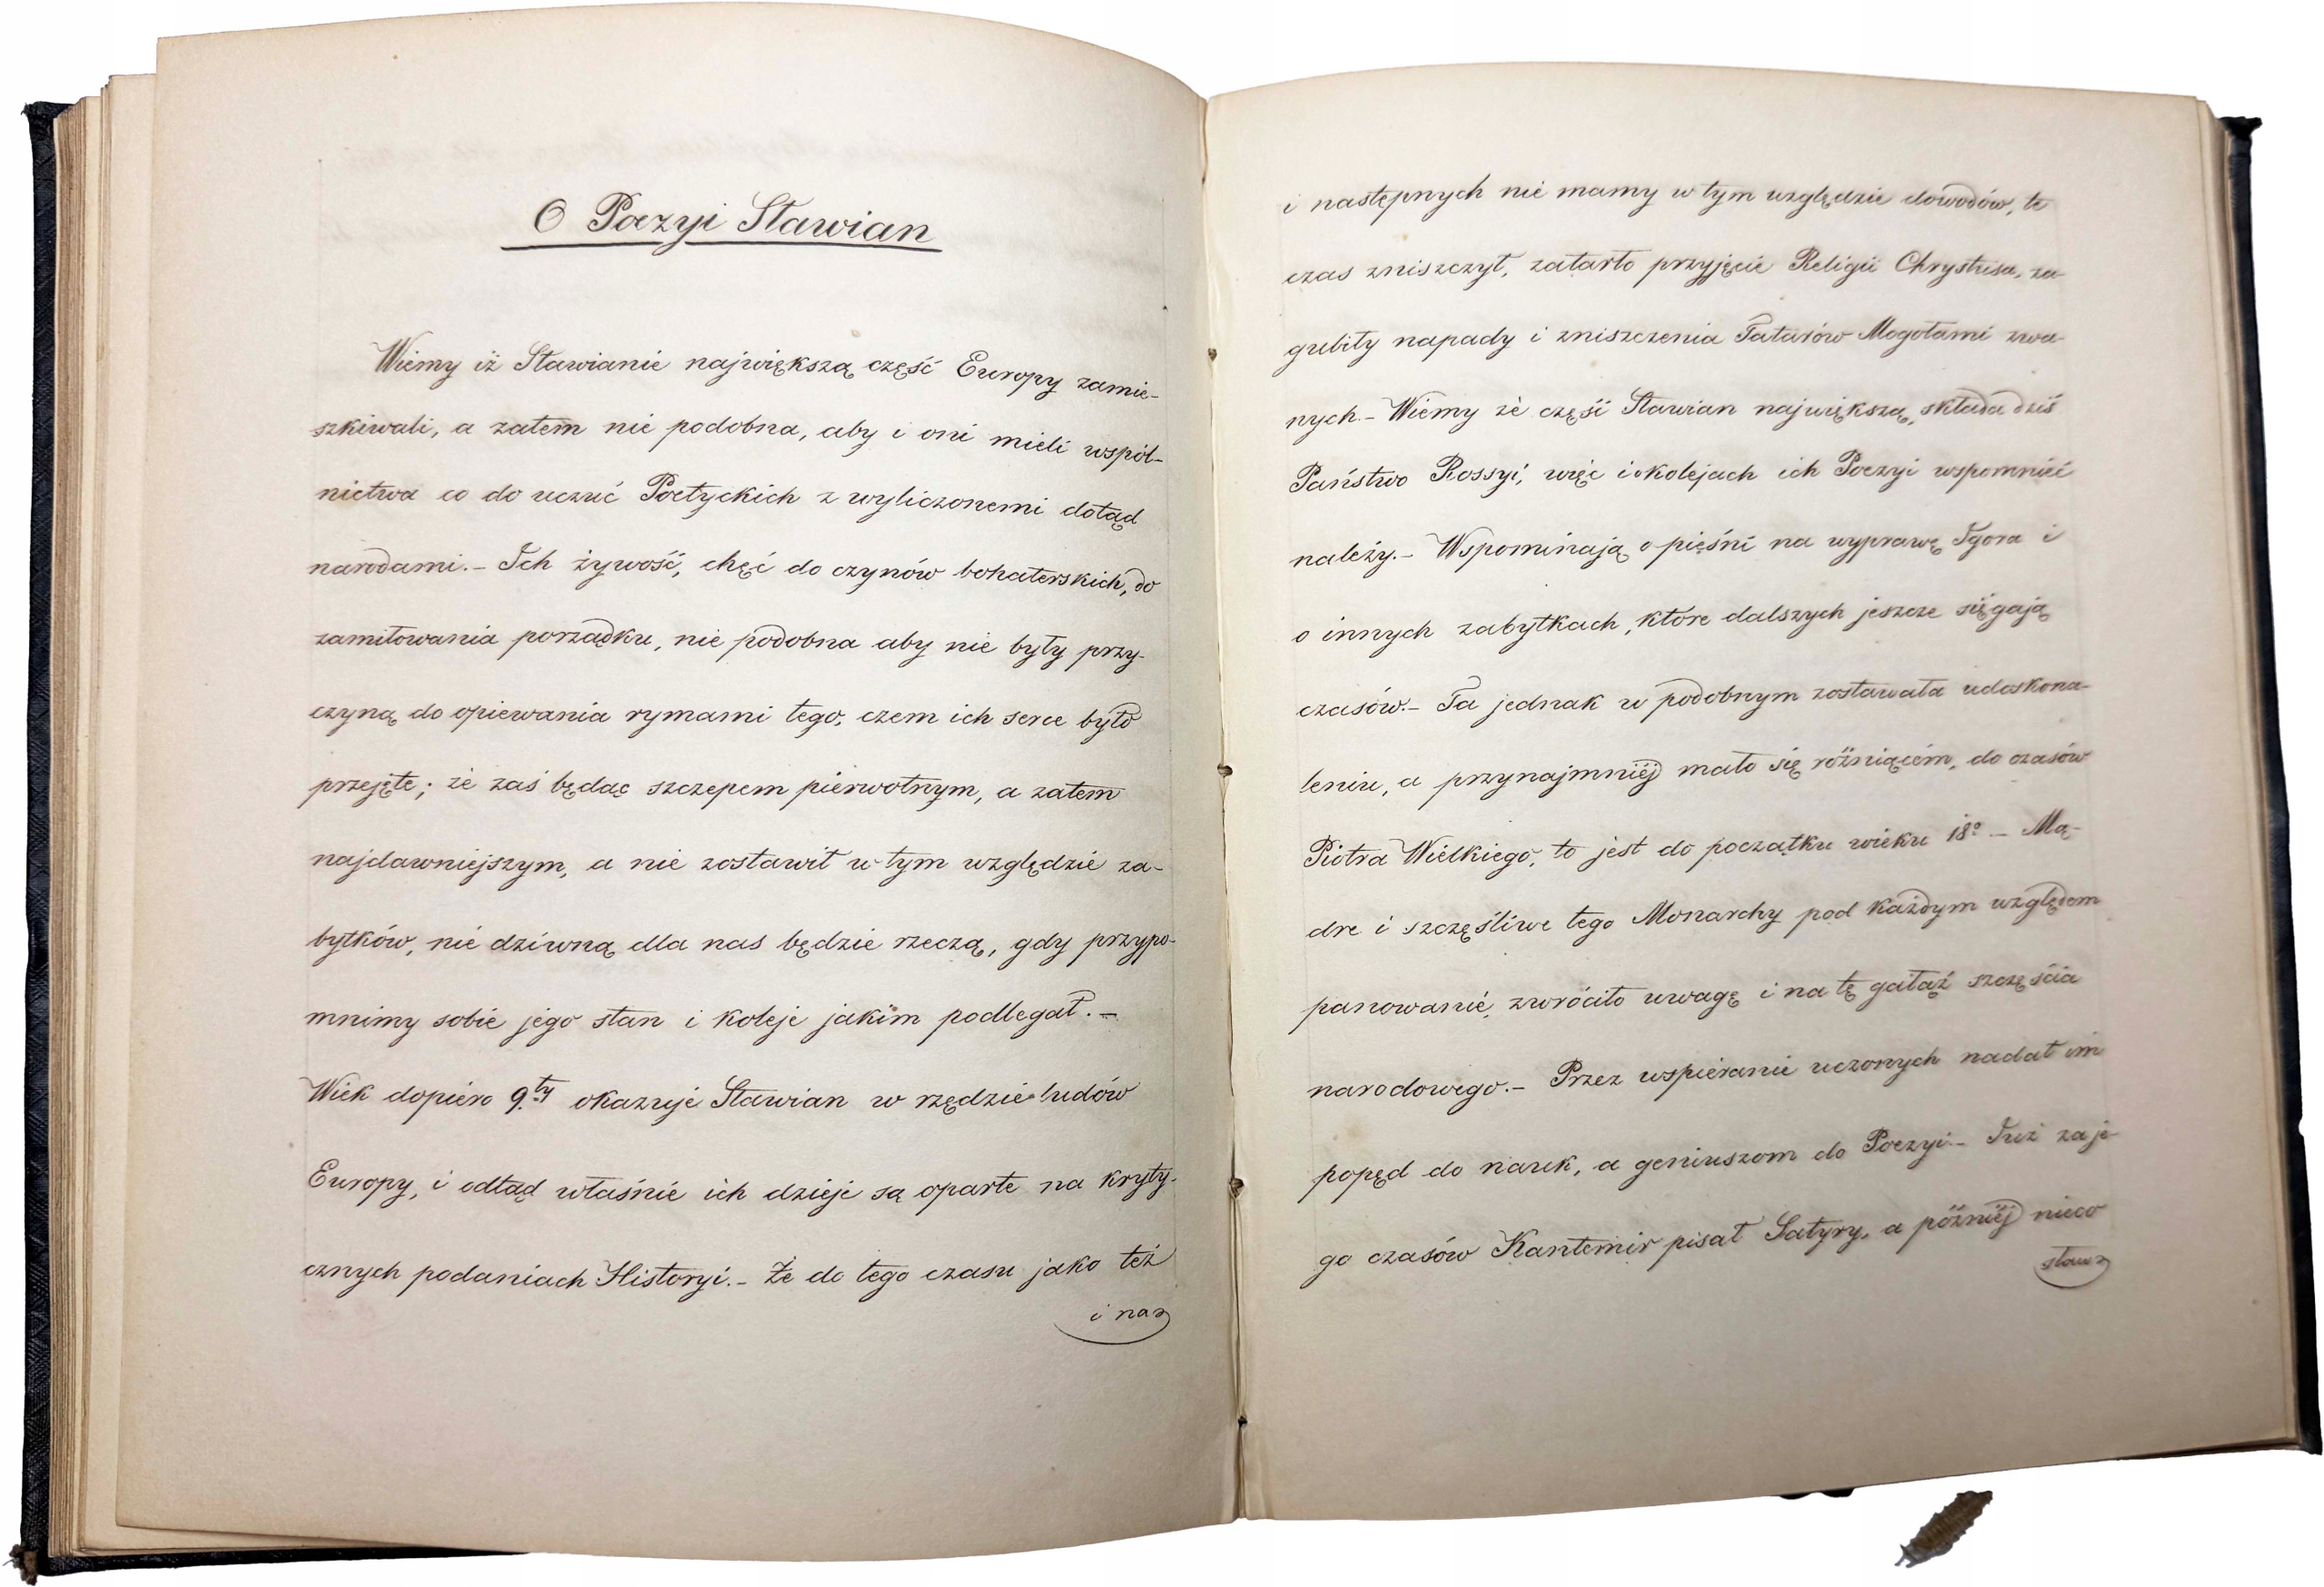 O Poezyi Sławian
Wiemy iż Sławianie największą część Europy zamie-
szkiwali, a zatem nie podobna, aby i oni mieli wspól-
nictwa co do uczuć Poetyckich z wyliczonemi dotąd
narodami. – Ich żywość, chęć do czynów bohaterskich, do
zamiłowania porządku, nie podobna aby nie były przy-
czyną do opiewania rymami tego, czem ich serce było
przejęte; że zaś będąc szczepem pierwotnym, a zatem
najdawniejszym, a nie zostawił w tym względzie za-
bytków, nie dziwną dla nas będzie rzeczą, gdy przypo-
mnimy sobie jego stan i koleje jakim podlegał. –
Wiek dopiero 9.ty okazuje Sławian w rzędzie ludów
Europy, i odtąd właśnie ich dzieje są oparte na kryty-
cznych podaniach Historyi. – Że do tego czasu jako też
i nas
i następnych nie mamy w tym względzie dowodów, te
czas zniszczył, zatarło przyjęcie Religii Chrystusa, za-
gubiły napady i zniszczenia Tatarów Mogołami zwa-
nych. – Wiemy że część Sławian największą, składa dziś
Państwo Rossyi, więc i o kolejach ich Poezyi wspomnieć
należy. – Wspominają o pieśni na wyprawę Igora i
o innych zabytkach, które dalszych jeszcze sięgają
czasów. – Ta jednak w podobnym zostawała udoskona-
leniu, a przynajmniéj mało się różniącém, do czasów
Piotra Wielkiego, to jest do początku wieku 18º – Mą-
dre i szczęśliwe tego Monarchy pod każdym względem
panowanie, zwróciło uwagę i na tę gałąź szczęścia
narodowego. – Przez wspieranie uczonych nadał im
popęd do nauk, a geniuszom do Poezyi. – Tuż za je-
go czasów Kantemir pisał Satyry, a późniéj nieco
sław